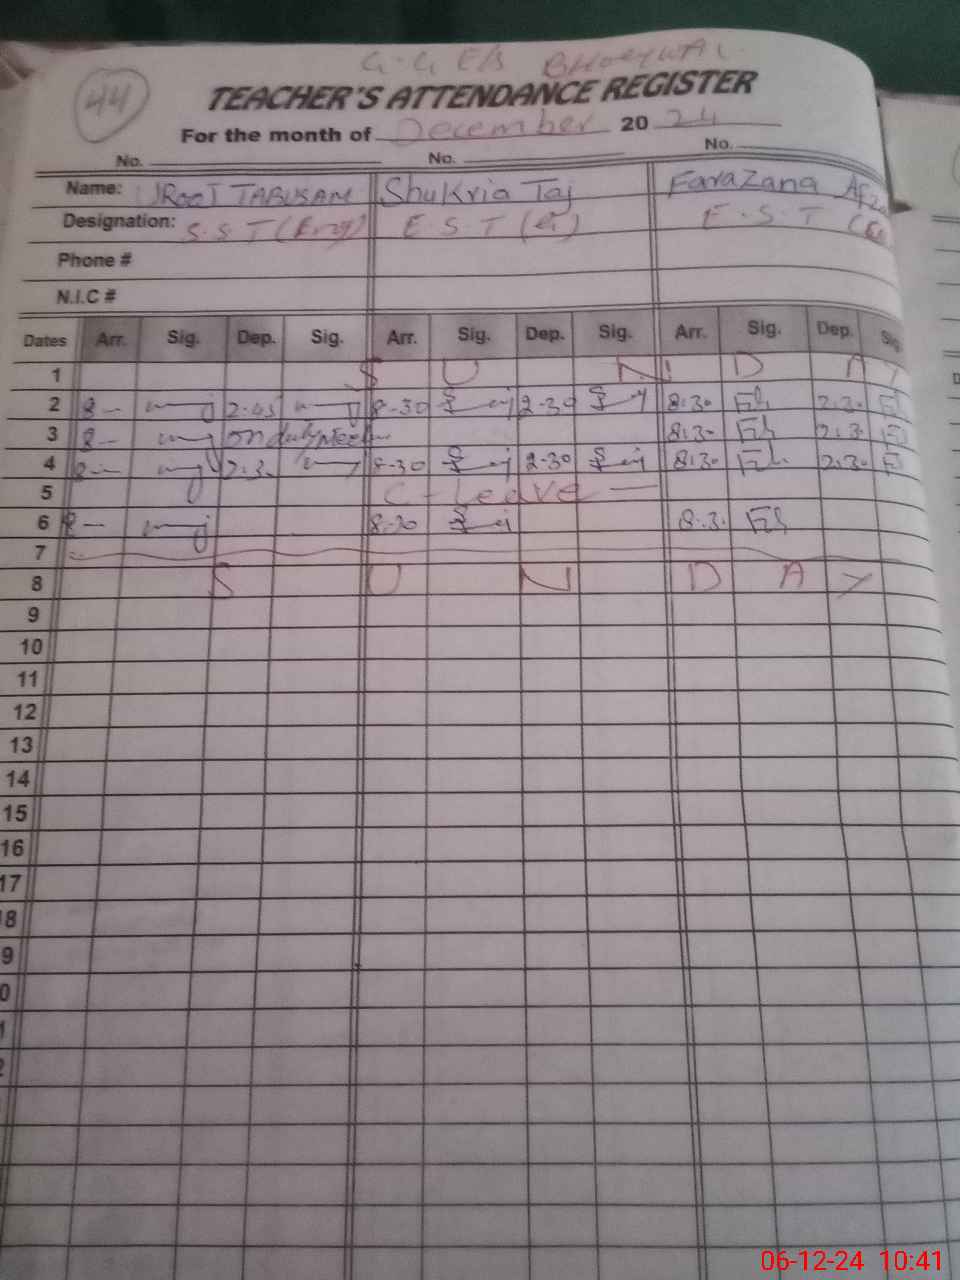 44
G.G E/S
TEACHER'S ATTENDANCE REGISTER
For the month of December 20 24
No. No. No.
Name: UROOJ TABUSAM Shukria Taj Farazana
Designation: S.S.T E.S.T (G) E.S.T
Phone #
N.I.C #
Dates Arr. Sig. Dep. Sig. Arr. Sig. Dep. Sig. Arr. Sig. Dep. Sig
1 S U N D A Y
2 8- 2.45 8-30 2-30 8.30 2.30
3 8- on duty 8.30 2.30
4 8- 2.30 8-30 2-30 8.30 2.30
5 C-Leave
6 8- 8.30 8.30
7
8 S U N D A Y
9
10
11
12
13
14
15
16
17
8
9
0
1
2
06-12-24 10:41